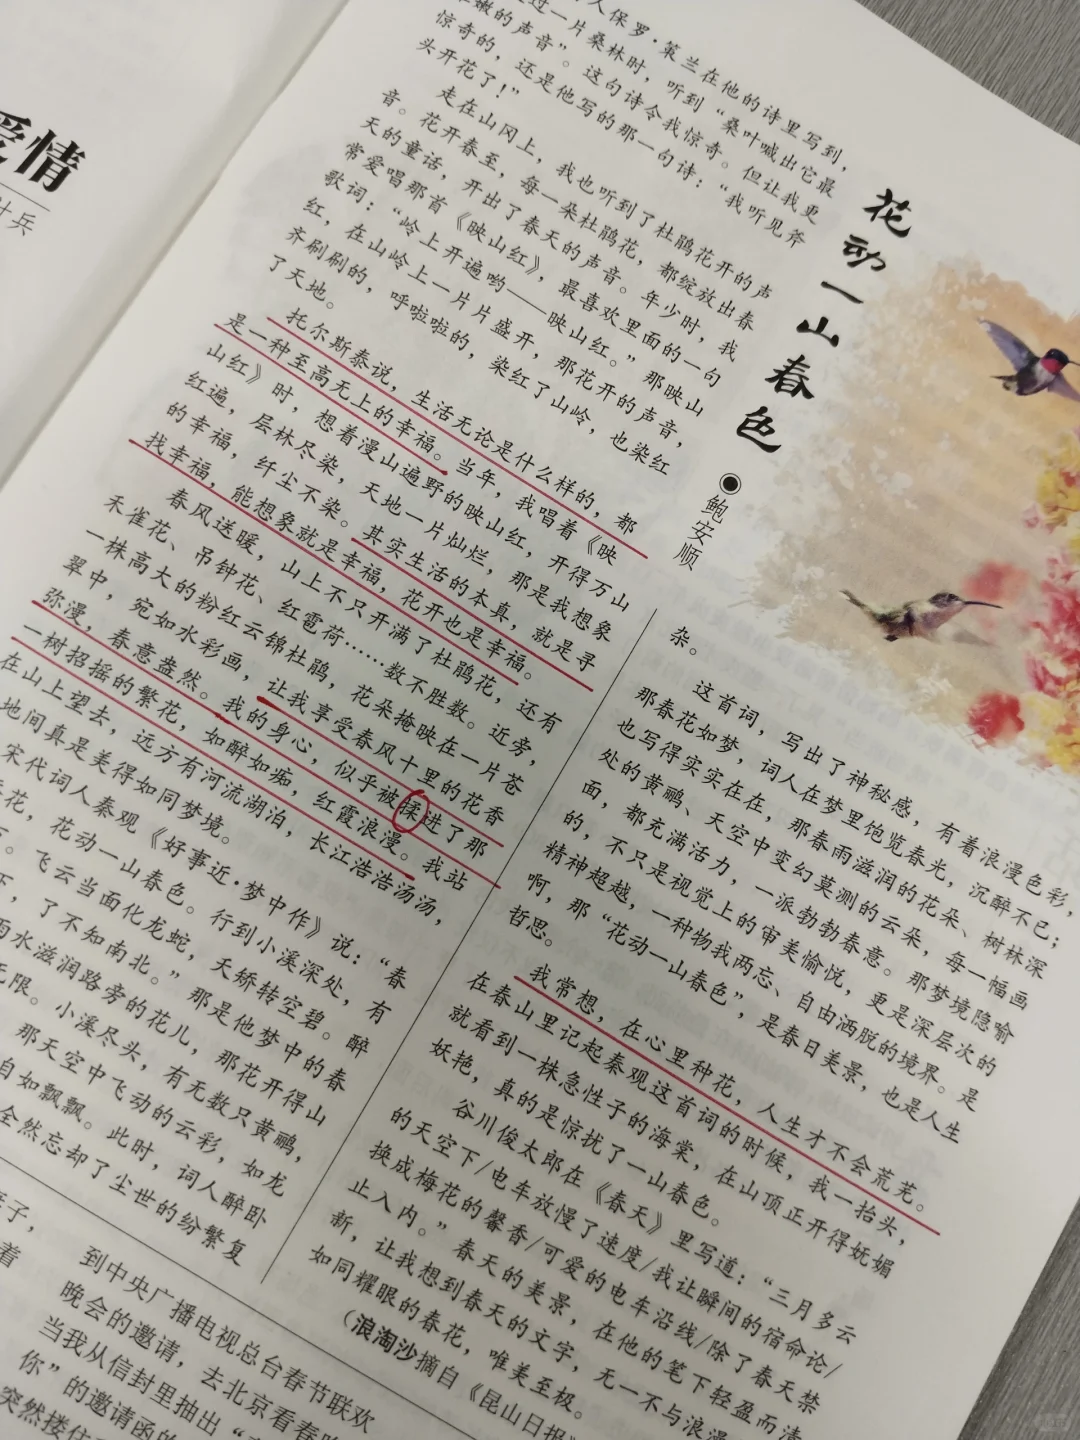 爱情
叶兵
花动一山春色
◉鲍安顺
人保罗·策兰在他的诗里写到，
过一片桑林时，听到“桑叶喊出它最
嫩的声音”。这句诗令我惊奇。但让我更
惊奇的，还是他写的那一句诗：“我听见斧
头开花了！”
走在山冈上，我也听到了杜鹃花开的声
音。花开春至，每一朵杜鹃花，都绽放出春
天的童话，开出了春天的声音。年少时，我
常爱唱那首《映山红》，最喜欢里面的一句
歌词：“岭上开遍哟——映山红。”那映山
红，在山岭上一片片盛开，那花开的声音，
齐刷刷的，呼啦啦的，染红了山岭，也染红
了天地。
托尔斯泰说，生活无论是什么样的，都
是一种至高无上的幸福。当年，我唱着《映
山红》时，想着漫山遍野的映山红，开得万山
红遍，层林尽染，天地一片灿烂，那是我想象
的幸福，纤尘不染。其实生活的本真，就是寻
找幸福，能想象就是幸福，花开也是幸福。
春风送暖，山上不只开满了杜鹃花，还有
禾雀花、吊钟花、红雹荷……数不胜数。近旁，
一株高大的粉红云锦杜鹃，花朵掩映在一片苍
翠中，宛如水彩画，让我享受春风十里的花香
弥漫，春意盎然。我的身心，似乎被揉进了那
一树招摇的繁花，如醉如痴，红霞浪漫。我站
在山上望去，远方有河流湖泊，长江浩浩汤汤，
地间真是美得如同梦境。
宋代词人秦观《好事近·梦中作》说：“春
花，花动一山春色。行到小溪深处，有
。飞云当面化龙蛇，夭矫转空碧。醉
下，了不知南北。”那是他梦中的春
雨水滋润路旁的花儿，那花开得山
无限。小溪尽头，有无数只黄鹂，
那天空中飞动的云彩，如龙
自如飘飘。此时，词人醉卧
全然忘却了尘世的纷繁复
杂。
这首词，写出了神秘感，有着浪漫色彩，
那春花如梦，词人在梦里饱览春光，沉醉不已；
也写得实实在在，那春雨滋润的花朵、树林深
处的黄鹂、天空中变幻莫测的云朵，每一幅画
面，都充满活力，一派勃勃春意。那梦境隐喻
的，不只是视觉上的审美愉悦，更是深层次的
精神超越，一种物我两忘、自由洒脱的境界。是
啊，那“花动一山春色”，是春日美景，也是人生
哲思。
我常想，在心里种花，人生才不会荒芜。
在春山里记起秦观这首词的时候，我一抬头，
就看到一株急性子的海棠，在山顶正开得妩媚
妖艳，真的是惊扰了一山春色。
谷川俊太郎在《春天》里写道：“三月多云
的天空下/电车放慢了速度/我让瞬间的宿命论/
换成梅花的馨香/可爱的电车沿线/除了春天禁
止入内。”春天的美景，在他的笔下轻盈而清
新，让我想到春天的文字，无一不与浪漫
如同耀眼的春花，唯美至极。
（浪淘沙摘自《昆山日报》
子，
着
到中央广播电视总台春节联欢
晚会的邀请，去北京看春晚
当我从信封里抽出“
你”的邀请函的
突然搂住